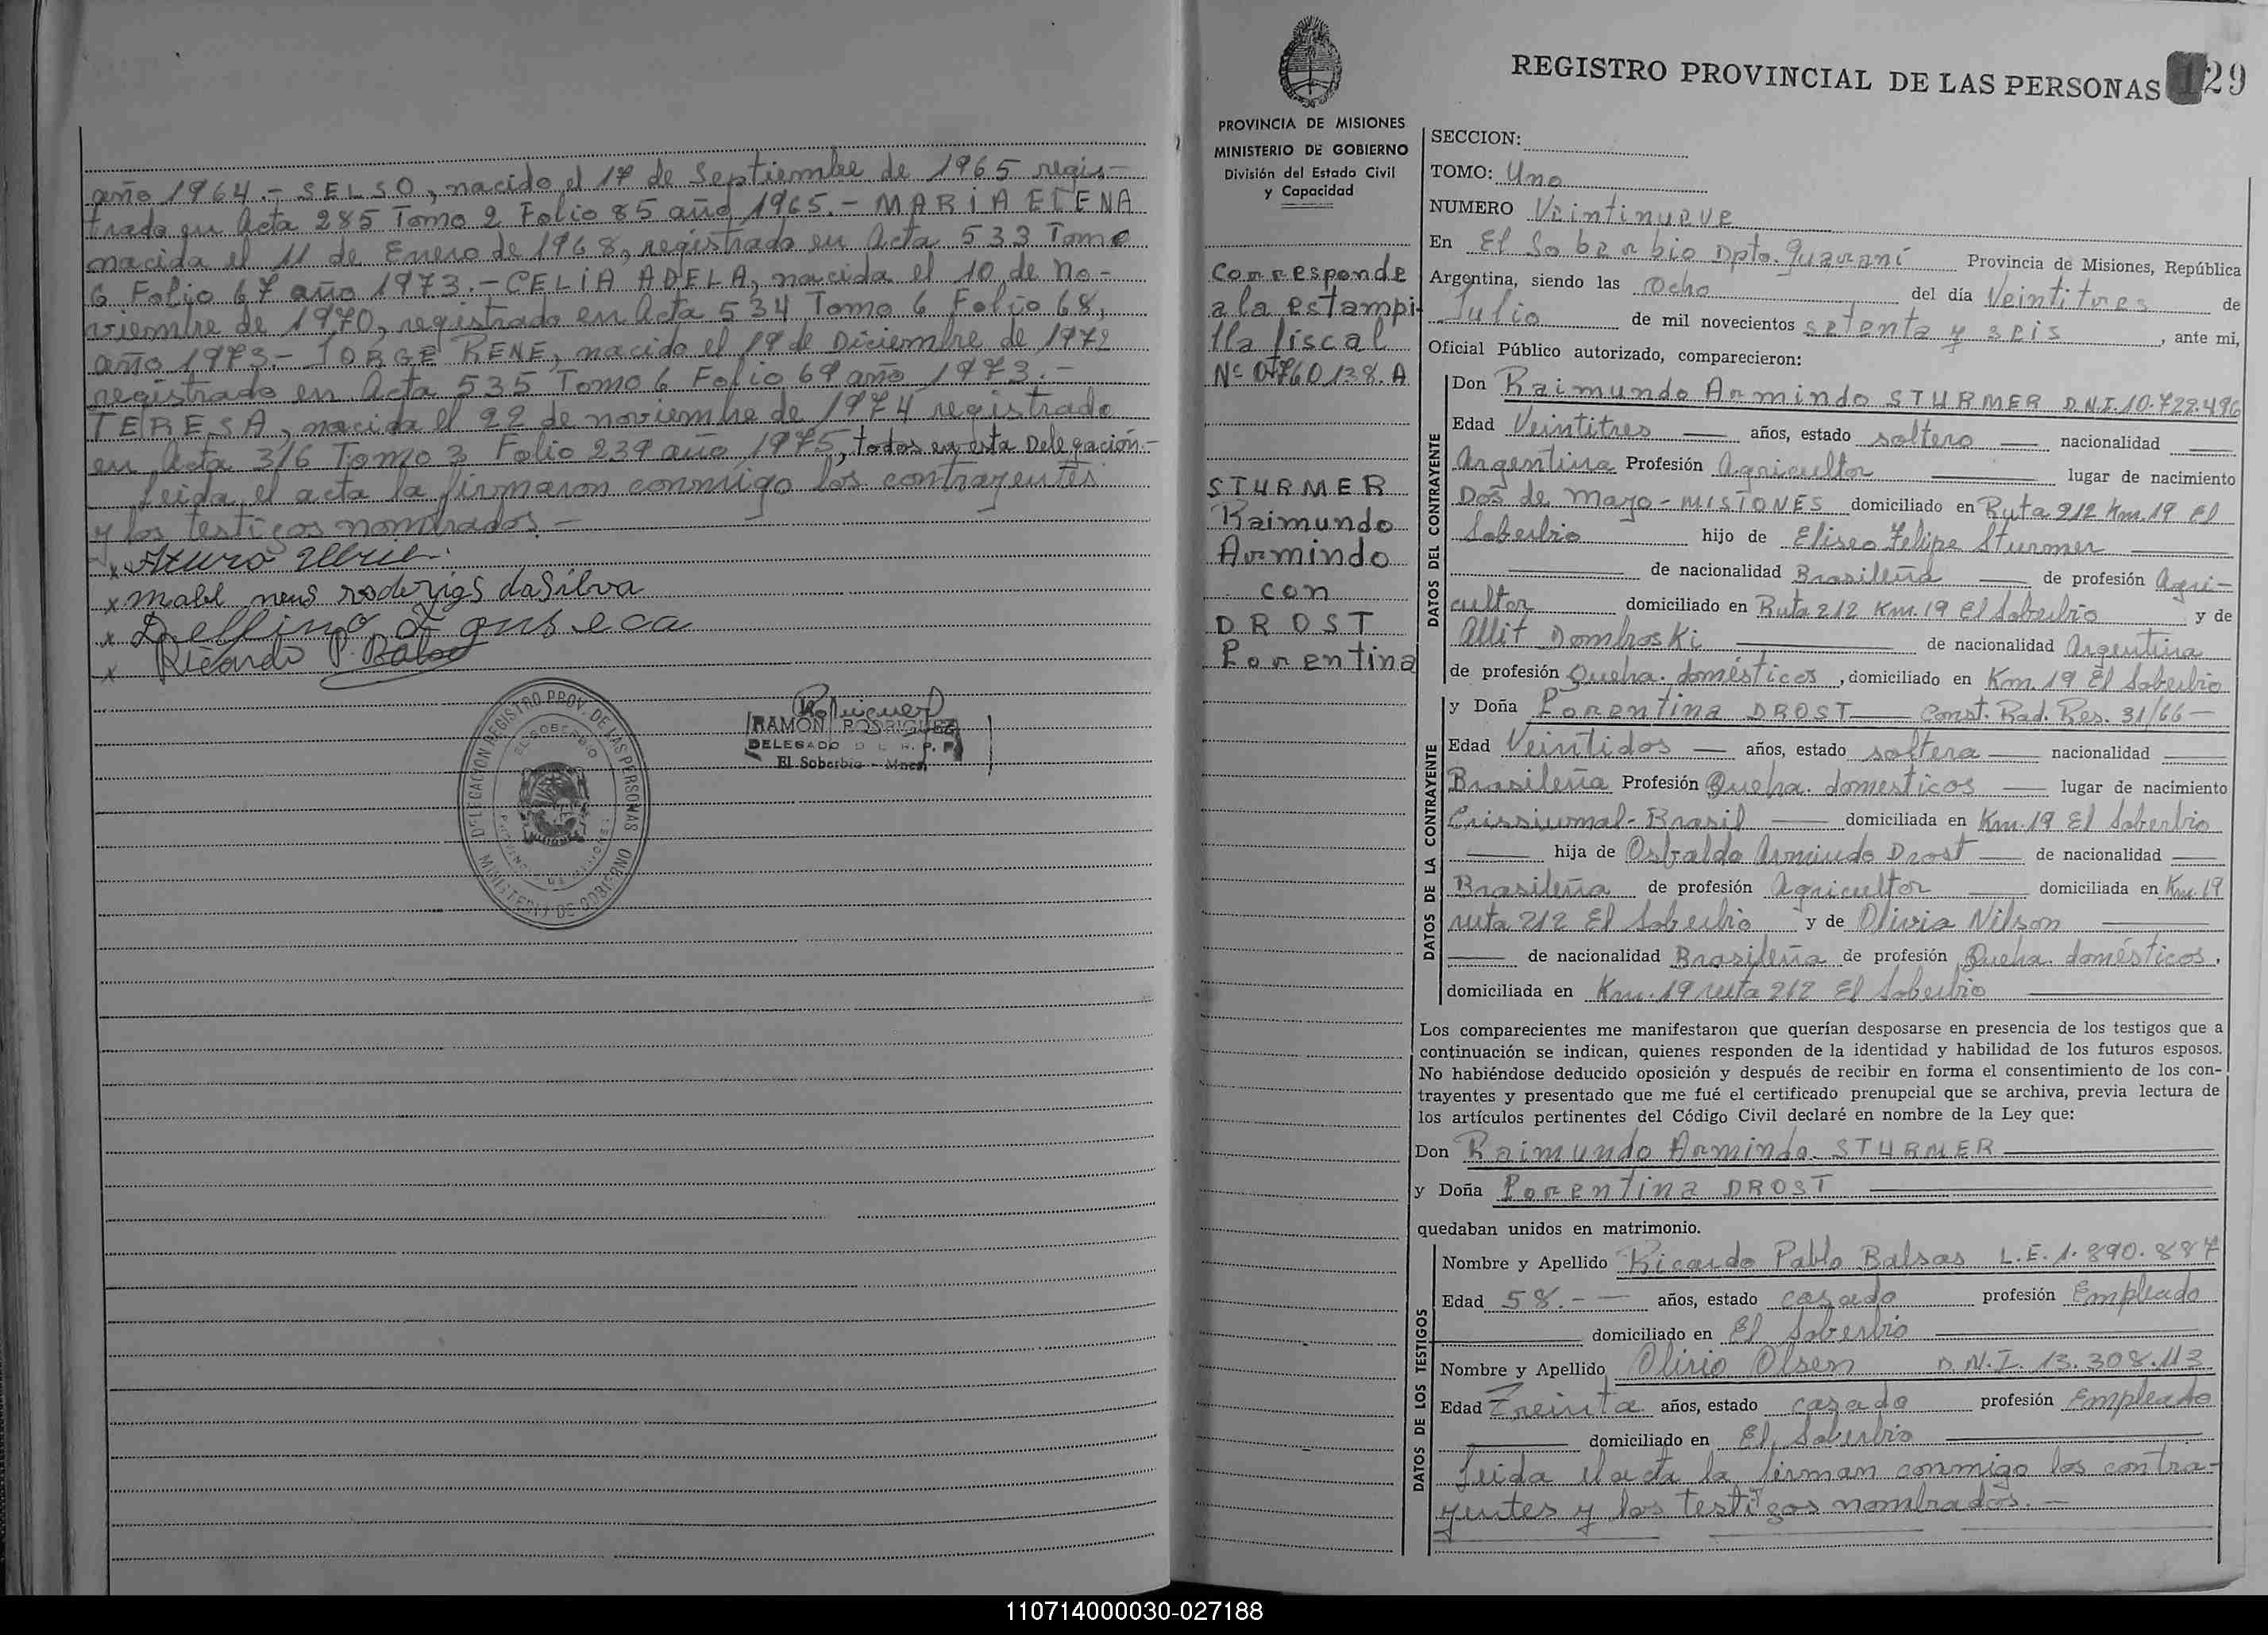 año 1964.- SELSO, nacido el 17 de Septiembre de 1965 regis-
trado en Acta 285 Tomo 2 Folio 85 año 1965.- MARIA ELENA
nacida el 11 de Enero de 1968, registrada en Acta 533 Tomo
6 Folio 67 año 1973.- CELIA ADELA, nacida el 10 de No-
viembre de 1970, registrada en Acta 534 Tomo 6 Folio 68,
año 1973.- JORGE RENE, nacido el 19 de Diciembre de 1972
registrado en Acta 535 Tomo 6 Folio 69 año 1973.-
TERESA, nacida el 22 de noviembre de 1974 registrado
en Acta 316 Tomo 3 Folio 239 año 1975, todos en esta Delegación.-
Leida el acta la firmaron conmigo los contrayentes
y los testigos nombrados.-
x Arturo
x Mabel neus roderigs dasilva
x Delfino
x Ricardo P. Balsas
DELEGACION REGISTRO PROV. DE LAS PERSONAS
EL SOBERBIO
PROVINCIA DE MISIONES
MINISTERIO DE GOBIERNO
RAMON RODRIGUEZ
DELEGADO D L R. P. P.
El Soberbio - Mnes.
PROVINCIA DE MISIONES
MINISTERIO DE GOBIERNO
División del Estado Civil
y Capacidad
Corresponde
a la estampi-
lla fiscal
Nº 0760138.A
STURMER
Raimundo
Armindo
con
DROST
Lorentina
REGISTRO PROVINCIAL DE LAS PERSONAS 129
SECCION:
TOMO: Uno
NUMERO Veintinueve
En El Soberbio Dpto. Guaraní Provincia de Misiones, República
Argentina, siendo las Ocho del día Veintitres de
Julio de mil novecientos setenta y seis, ante mi,
Oficial Público autorizado, comparecieron:
DATOS DEL CONTRAYENTE
Don Raimundo Armindo STURMER D.N.I. 10.729.496
Edad Veintitres años, estado soltero nacionalidad
Argentina Profesión Agricultor lugar de nacimiento
Dos de Mayo - MISIONES domiciliado en Ruta 212 Km.19 El
Soberbio hijo de Eliseo Felipe Sturmer
de nacionalidad Brasileña de profesión Agri-
cultor domiciliado en Ruta 212 Km.19 El Soberbio y de
Allit Dombroski de nacionalidad Argentina
de profesión Queha. domésticos, domiciliado en Km.19 El Soberbio
DATOS DE LA CONTRAYENTE
y Doña Lorentina DROST Const. Rad. Res. 31/66
Edad Veintidos años, estado soltera nacionalidad
Brasileña Profesión Queha. domesticos lugar de nacimiento
Crissiumal - Brasil domiciliada en Km.19 El Soberbio
hija de Osvaldo Armindo Drost de nacionalidad
Brasileña de profesión Agricultor domiciliada en Km.19
ruta 212 El Soberbio y de Olivia Nilson
de nacionalidad Brasileña de profesión Queha. domésticos,
domiciliada en Km.19 ruta 212 El Soberbio
Los comparecientes me manifestaron que querían desposarse en presencia de los testigos que a
continuación se indican, quienes responden de la identidad y habilidad de los futuros esposos.
No habiéndose deducido oposición y después de recibir en forma el consentimiento de los con-
trayentes y presentado que me fué el certificado prenupcial que se archiva, previa lectura de
los artículos pertinentes del Código Civil declaré en nombre de la Ley que:
Don Raimundo Armindo STURMER
y Doña Lorentina DROST
quedaban unidos en matrimonio.
DATOS DE LOS TESTIGOS
Nombre y Apellido Ricardo Pablo Balsas L.E. 1.890.887
Edad 58.- años, estado casado profesión Empleado
domiciliado en El Soberbio
Nombre y Apellido Olirio Olsen D.N.I. 13.308.113
Edad Treinta años, estado casado profesión Empleado
domiciliado en El Soberbio
Leida el acta la firman conmigo los contra-
yentes y los testigos nombrados.-
110714000030-027188